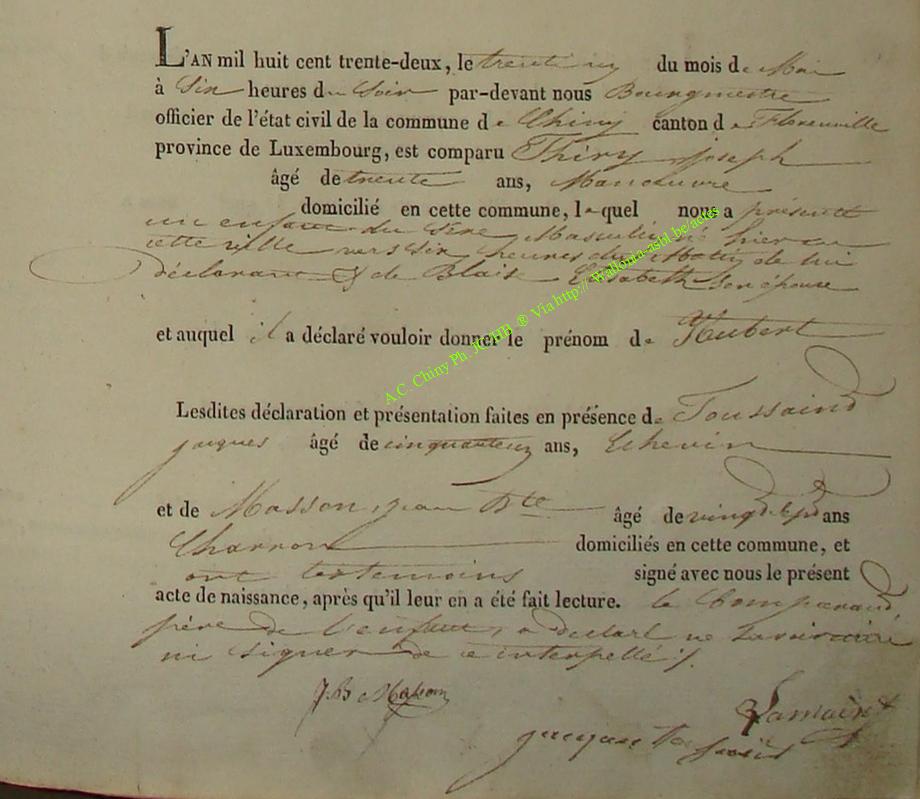 L'AN mil huit cent trente-deux, le trentieg du mois de Mai
à Six heures du Soir par-devant nous Bourgmestre
officier de l'état civil de la commune de Chiny canton de Florenville
province de Luxembourg, est comparu Thiry Joseph
âgé de trente ans, Manoeuvre
domicilié en cette commune, lequel nous a présenté
un enfant du Sexe Masculin, né hier en
cette ville vers Six heures du Matin de lui
déclarant & de Blaise Elisabeth Son épouse
et auquel il a déclaré vouloir donner le prénom de Hubert
Lesdites déclaration et présentation faites en présence de Toussaind
jacques âgé de cinquante ans, Echevin
et de Masson, jean Bte âgé de vingd sept ans
Charron domiciliés en cette commune, et
ont les temoins signé avec nous le présent
acte de naissance, après qu'il leur en a été fait lecture. le Comparand,
père de l'enfant, a déclaré ne Savoir écrire
ni signer de ce interpellé /.
J. B Masson
jacques
A.C. Chiny Ph. JC HB ® Via http:// Wallonia-asbl.be/actes